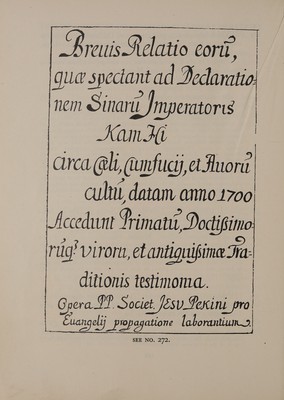 Breuis Relatio eorũ,
quæ spectant ad Declaratio-
nem Sinarũ Imperatoris
Kam Hi
circa Cœli, Cumfucij, et Auorũ
cultũ, datam anno 1700
Accedunt Primatũ, Doctißimo-
rũq3 virorũ, et antiquißimæ Tra-
ditionis testimonia.
Opera PP. Societ. JESU Pekini pro
Euangelij propagatione laborantium.
SEE NO. 272.